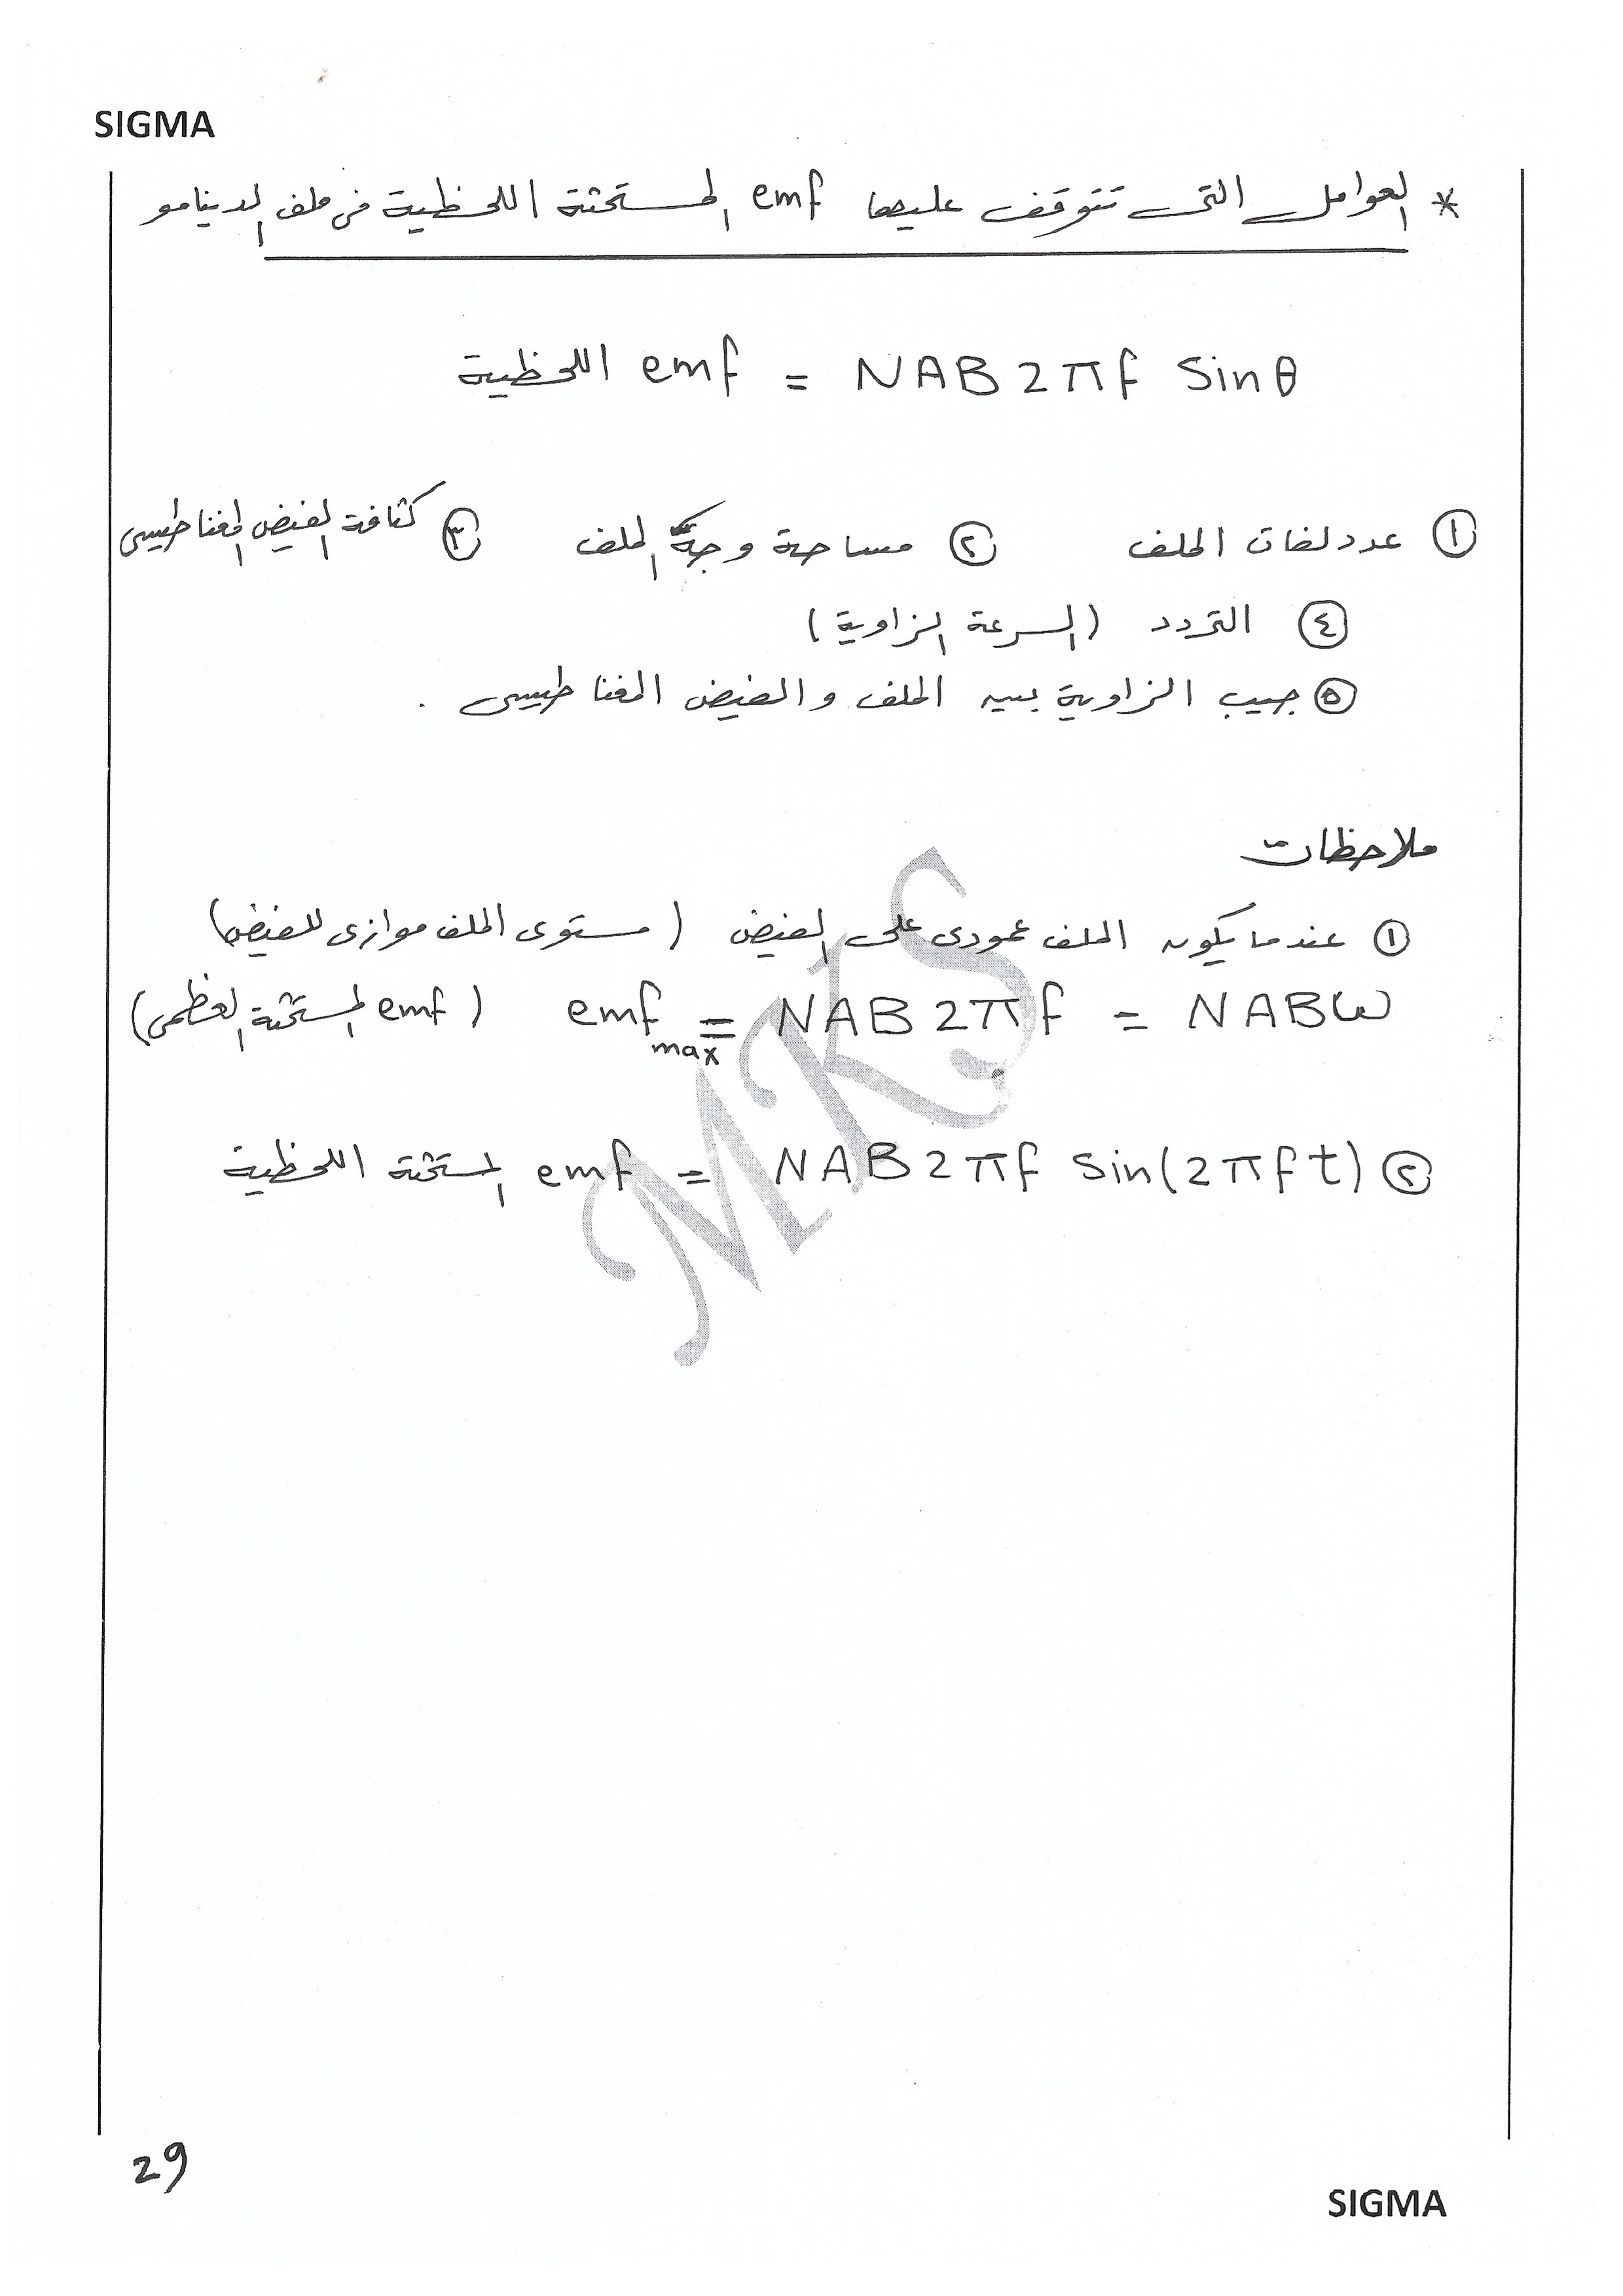 SIGMA
* العوامل التى تتوقف عليها emf المستحثة اللحظية فى ملف الدينامو
اللحظية emf = NAB2πf Sinθ
① عدد لفات الملف ② مساحة وجه الملف ③ كثافة الفيض المغناطيسى
④ التردد (السرعة الزاوية)
⑤ جيب الزاوية بين الملف والفيض المغناطيسى .
ملاحظات
① عندما يكون الملف عمودى على الفيض (مستوى الملف موازى للفيض)
(emf المستحثة العظمى) emf max = NAB2πf = NABω
المستحثة اللحظية emf = NAB2πf Sin(2πft) ②
MKS
29
SIGMA